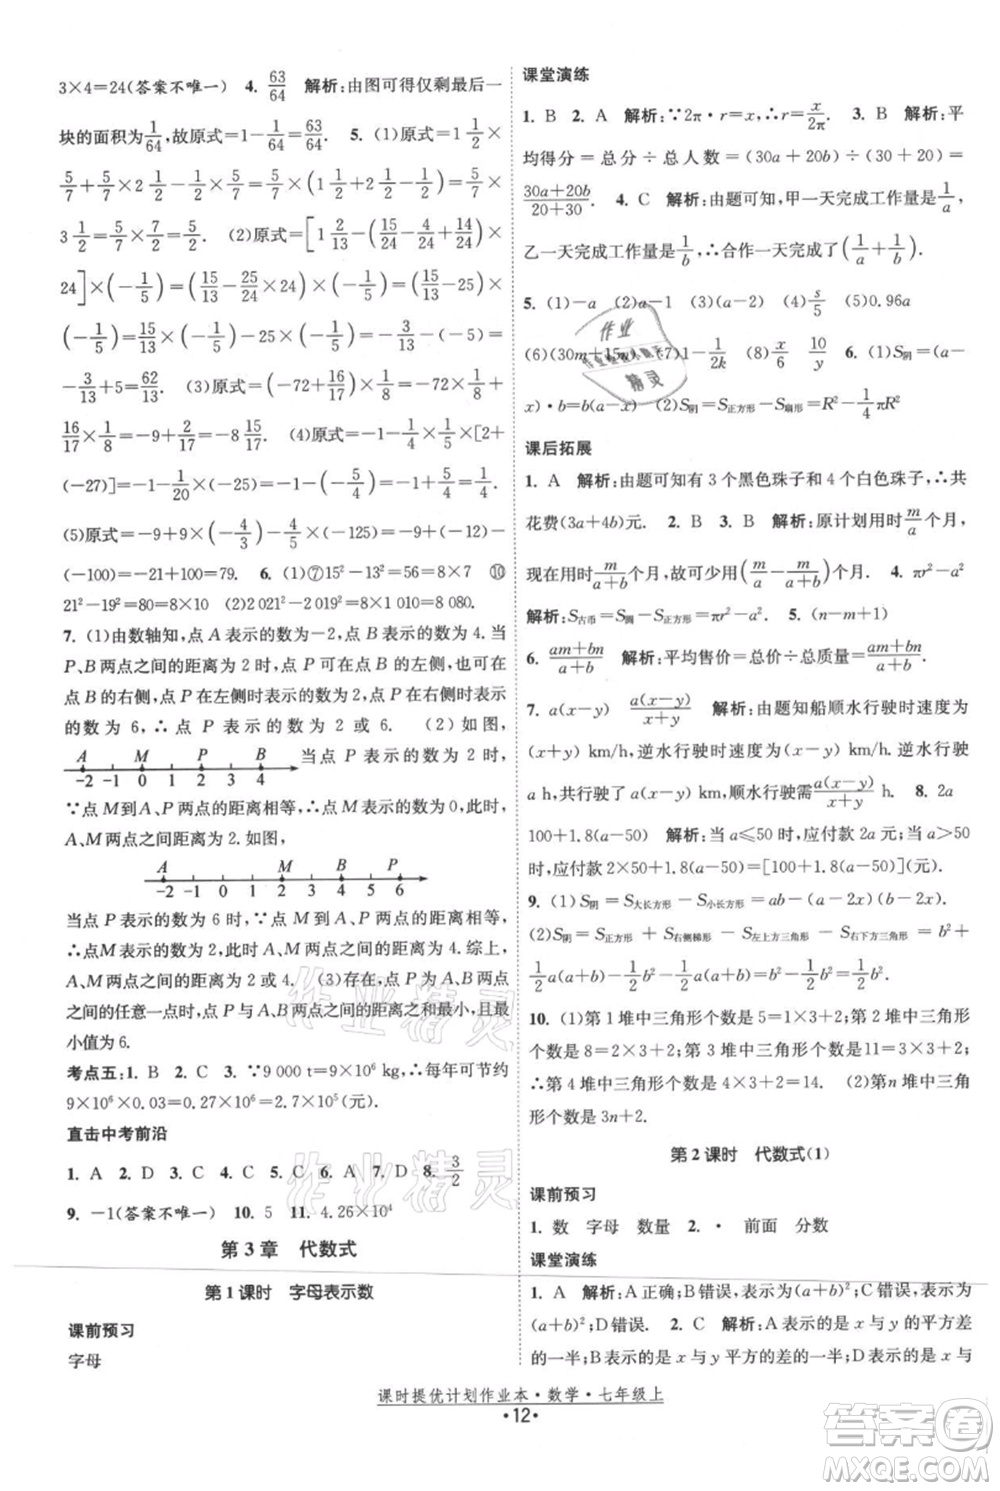 3×4=24(答案不唯一) 4. 63/64 解析:由图可得仅剩最后一
块的面积为1/64,故原式=1-1/64=63/64. 5. (1)原式=1 1/2×
5/7+5/7×2 1/2-5/7×1/2=5/7×(1 1/2+2 1/2-1/2)=5/7×
3 1/2=5/7×7/2=5/2. (2)原式=[1 2/13-(3/24+4/24+14/24)×
24]×(-1/5)=(15/13-25/24×24)×(-1/5)=(15/13-25)×
(-1/5)=15/13×(-1/5)-25×(-1/5)=-3/13-(-5)=
-3/13+5=62/13. (3)原式=(-72+16/17)×1/8=-72×1/8+
16/17×1/8=-9+2/17=-8 15/17. (4)原式=-1-1/4×1/5×[2+
(-27)]=-1-1/20×(-25)=-1+5/4=1/4.
(5)原式=-9+9×(-4/3)-4/5×(-125)=-9+(-12)-
(-100)=-21+100=79. 6. (1)⑦15²-13²=56=8×7 ⑩
21²-19²=80=8×10 (2)2 021²-2 019²=8×1 010=8 080.
7. (1)由数轴知,点 A 表示的数为-2,点 B 表示的数为 4. 当
P、B 两点之间的距离为 2 时,点 P 可能在点 B 的左侧,也可能在
点 B 的右侧,点 P 在左侧时表示的数为 2,点 P 在右侧时表示
的数为 6,∴点 P 表示的数为 2 或 6. (2)如图,
A M P B
-2 -1 0 1 2 3 4
当点 P 表示的数为 2 时,
∵点 M 到 A、P 两点的距离相等,∴点 M 表示的数为 0,∴
A、M 两点之间距离为 2.如图,
A M B P
-2 -1 0 1 2 3 4 5 6
当点 P 表示的数为 6 时,∵点 M 到 A、P 两点的距离相等,
∴点 M 表示的数为 2,∴A、M 两点之间距离为 4.综上,
A、M 两点之间的距离为 2 或 4. (3)存在,当点 P 在 A、B 两
点之间的任意一点时,点 P 与 A、B 两点之间的距离和最小,且最
小值为 6.
考点五:1. B 2. C 3. ∵9 000 t=9×10⁶ kg,∴每年可节约
9×10⁶×0.03=0.27×10⁶=2.7×10⁵(元)
直击中考前沿
1. A 2. D 3. C 4. C 5. D 6. A 7. D 8. 3/2
9. -1(答案不唯一) 10. 5 11. 4.26×10⁴
第 3 章 代数式
第 1 课时 字母表示数
课前预习
字母
课堂演练
1. B 2. A 解析:∵2π·r=x,∴r=x/2π. 3. B 解析:平
均得分=总分÷总人数=(30a+20b)÷(20+30)=
30a+20b/20+30. 4. C 解析:由题可知,甲一天完成工作量是1/a,
乙一天完成工作量是1/b,∴合作一天完成了(1/a+1/b).
5. (1)-a (2)2a-1 (3)(a-2) (4)s/5 (5)0.96a
(6)(30m+15n) (7)1-1/2k (8)x/6 10/y 6.
x)·b=b(a-x) (2)S阴=S正方形-S扇形=R²-1/4πR²
课后拓展
1. A 解析:由题可知有 3 个黑色珠子和 4 个白色珠子,∴共
花费(3a+4b)元. 2. B 3. B 解析:原计划用时m/a个月,
现在用时m/a+b个月,故可提前(m/a-m/a+b)个月. 4. πr²-a²
解析:S古币=S圆-S正方形=πr²-a². 5. (n-m+1)
6. am+bn/a+b 解析:平均售价=总价÷总质量=am+bn/a+b.
7. a(x-y) a(x-y)/x+y 解析:由题知船顺水行驶时速度为
(x+y) km/h,逆水行驶时速度为(x-y) km/h,∴逆水行驶
a h,共行驶了a(x-y) km,顺水行驶需a(x-y)/x+y h. 8. 2a
100+1.8(a-50) 解析:当 a≤50 时,应付款 2a 元;当 a>50
时,应付款 2×50+1.8(a-50)=[100+1.8(a-50)](元)
9. (1)S阴=S大长方形-S小长方形=ab-(a-2)(b-2)
(2)S阴=S正方形+S右侧梯形-S左上方三角形-S右下方三角形=a²+
1/2a(a+b)-1/2a²-1/2b(a+b)=a²-1/2b²
10. (1)第 1 堆中三角形个数是 5=1×3+2;第 2 堆中三角形
个数是 8=2×3+2;第 3 堆中三角形个数是 11=3×3+2;
∴第 4 堆中三角形个数是 4×3+2=14. (2)第 n 堆中三角
形个数是 3n+2.
第 2 课时 代数式(1)
课前预习
1. 数 字母 数量 2. · 前面 分数
课堂演练
1. A 解析:A 正确;B 错误,表示为(a+b)²;C 错误,表示为
(a+b)²;D 错误. 2. C 解析:A 错误,表示 x 与 y 平方差
的一半;B 错误,表示的是 x 与 y 平方的差的一半;D 错误,表示的是 x 与
课时提优计划作业本·数学·七年级上
·12·
作业精灵
作业精灵
作业
精灵
答案圈
MXQE.COM